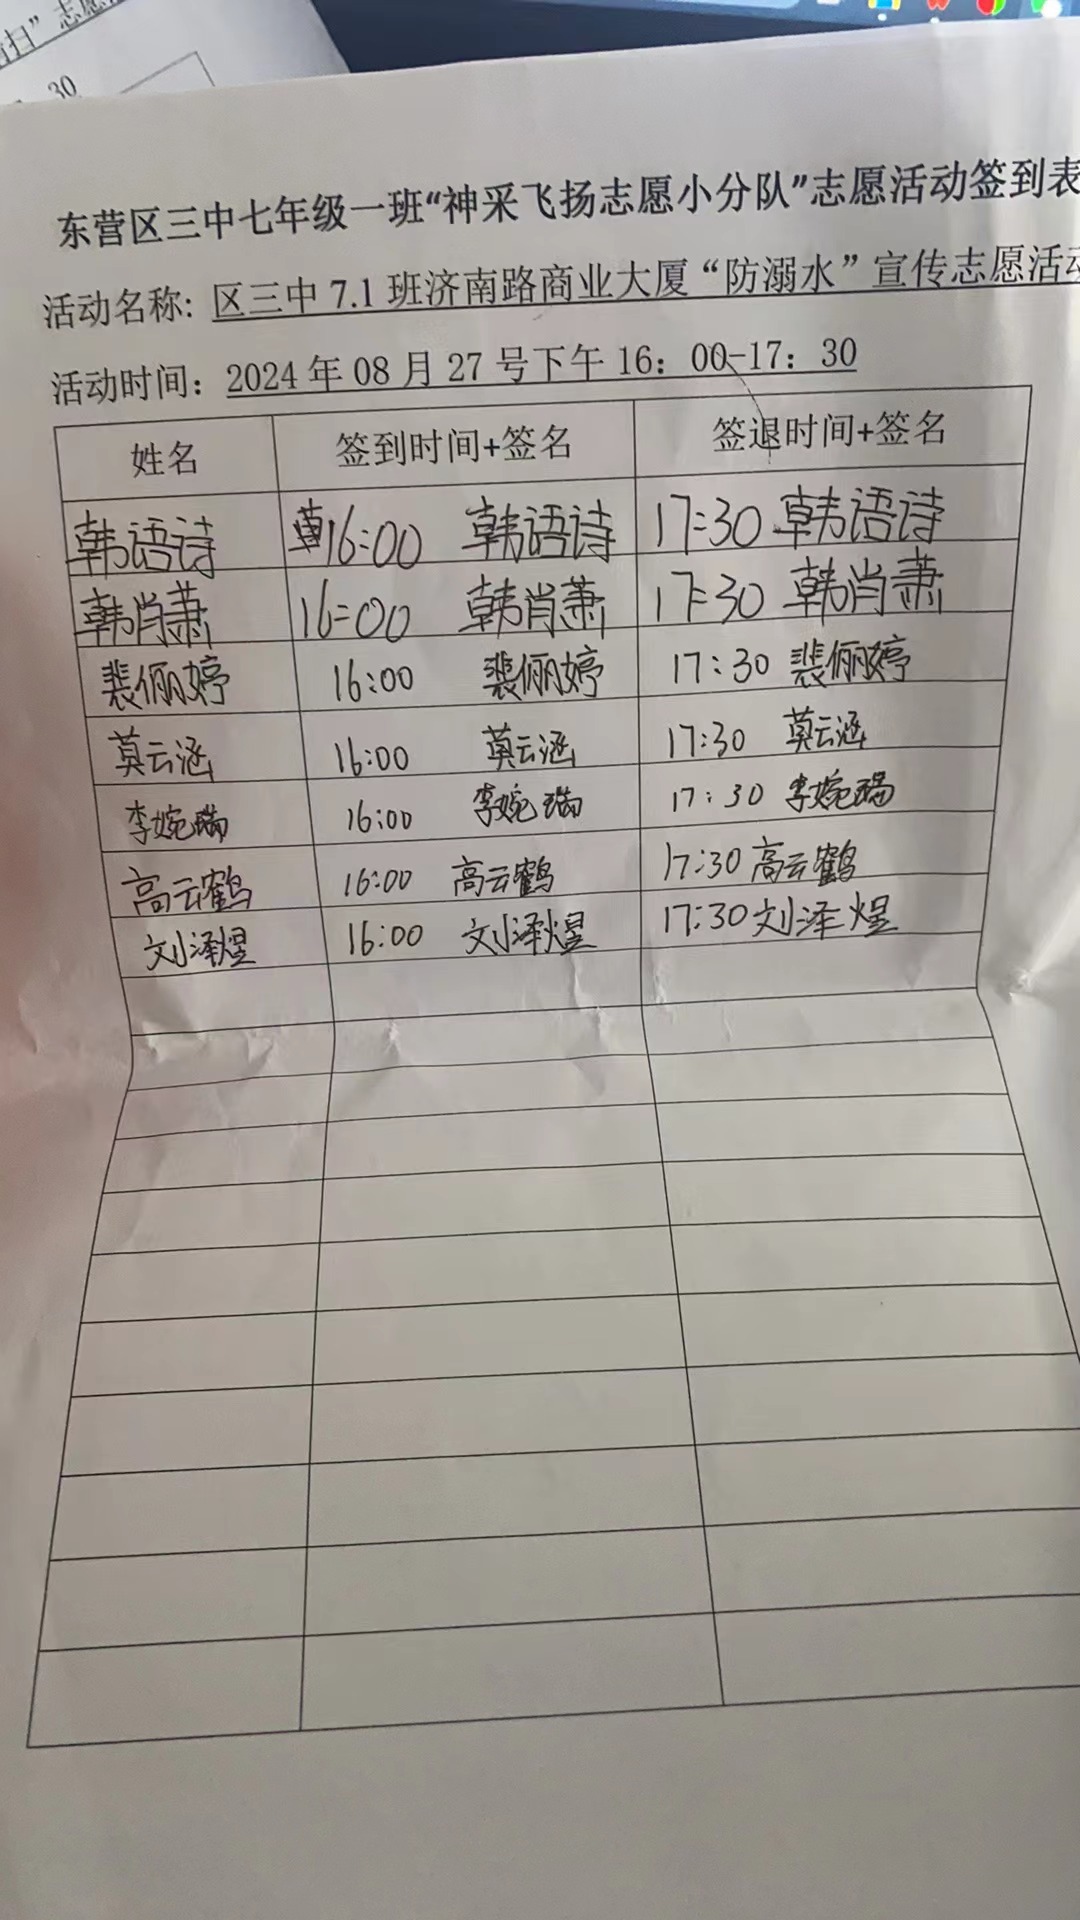 扫”志愿
30
东营区三中七年级一班“神采飞扬志愿小分队”志愿活动签到表
活动名称: 区三中 7.1 班济南路商业大厦“防溺水”宣传志愿活动
活动时间: 2024 年 08 月 27 号下午 16: 00-17: 30
姓名 签到时间+签名 签退时间+签名
韩语诗 16:00 韩语诗 17:30 韩语诗
韩肖萧 16:00 韩肖萧 17:30 韩肖萧
裴俪婷 16:00 裴俪婷 17:30 裴俪婷
莫云涵 16:00 莫云涵 17:30 莫云涵
李婉瑞 16:00 李婉瑞 17:30 李婉瑞
高云鹤 16:00 高云鹤 17:30 高云鹤
刘泽煜 16:00 刘泽煜 17:30 刘泽煜